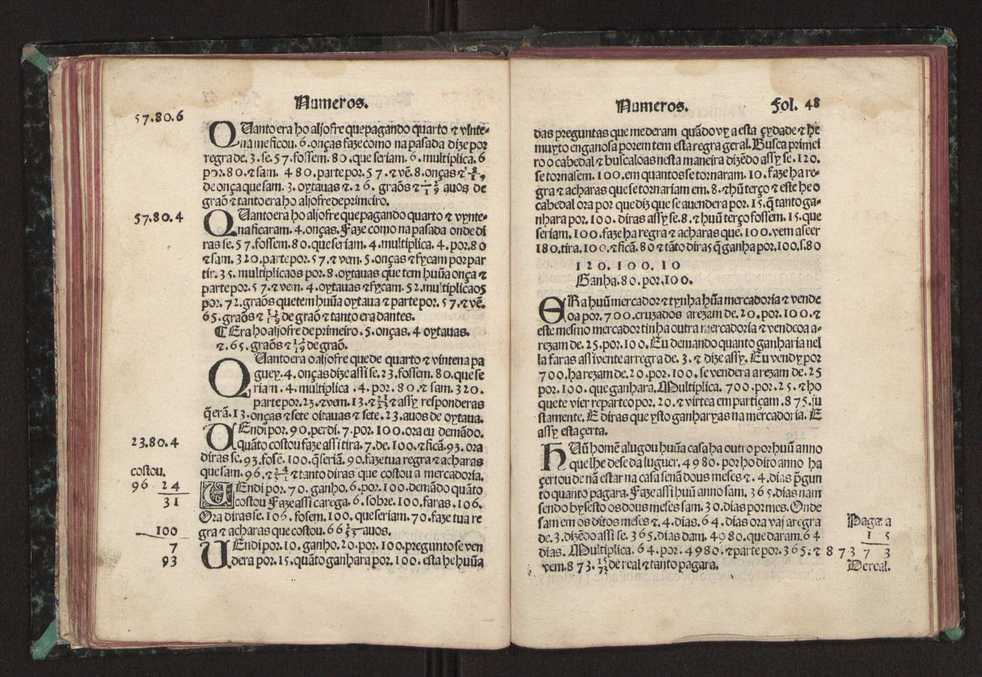 Numeros.
57.80.6
QUanto era ho aljofre que pagando quarto ⁊ vinte-
na me ficou. 6. onças faze como na pasada dize por
regra de. 3. se. 57. fossem. 80. que seriam. 6. multiplica. 6
por. 80. ⁊ sam. 480. parte por. 57. ⁊ vẽ. 8. onças ⁊
de onça que sam. 3. oytauas ⁊. 26. graõs ⁊ auos de
graõ ⁊ tanto era ho aljofre de primeiro.
57.80.4
QUanto era ho aljofre que pagando quarto ⁊ vynte-
na ficaram. 4. onças. Faze como na pasada onde di
ras se. 57. fossem. 80. que seriam. 4. multiplica. 4. por. 80
⁊ sam. 320. parte por. 57. ⁊ vem. 5. onças ⁊ fycam por par
tir. 35. multiplica os por. 8. oytauas que tem hũa onça ⁊
parte por. 57. ⁊ vem. 4. oytauas ⁊ fycam. 52. multiplica os
por. 72. graõs que tem hũa oytaua ⁊ parte por. 57. ⁊ vẽ.
65. graõs ⁊ de graõ ⁊ tanto era dantes.
¶ Era ho aljofre de primeiro. 5. onças. 4 oytauas.
⁊. 65. graõs ⁊ de graõ.
QUanto era o aljofre que de quarto ⁊ vintena pa
guey. 4. onças dize assi se. 23. fossem. 80. que se
riam. 4. multiplica. 4. por. 80. ⁊ sam. 320.
parte por. 23. ⁊ vem. 13. ⁊ ⁊ assy responderas
q̃ erã. 13. onças ⁊ sete oitauas ⁊ sete. 23. auos de oytaua.
VEndi por. 90. perdi. 7. por. 100. ora eu demãdo.
23.80.4
quãto costou faze assi tira. 7. de. 100. ⁊ ficã. 93. ora
diras se. 93. fosẽ. 100. q̃ seriã. 90. faze tua regra ⁊ acharas
costou.
96 24
31
que sam. 96. ⁊ ⁊ tanto diras que costou a mercadoria.
VEndi por. 70. ganho. 6. por. 100. demãdo quãto
costou Faze assi carega. 6. sobre. 100. faras. 106.
Ora diras se. 106. fosem. 100. que seriam. 70. faze tua re
100
gra ⁊ acharas que costou. 66 auos.
7
VEndi por. 10. ganho. 20. por. 100. pregunto se ven
93
dera por. 15. quãto ganhara por. 100. esta he hũa
Numeros. Fol. 48
das preguntas que me deram quãdo vỹ a esta cydade ⁊ he
muyto enganosa porem tem esta regra geral. Busca primei
ro o cabedal ⁊ busca lo as nesta maneira dizẽdo assy se. 120.
se tornasem. 100. em quantos se tornaram. 10. faze ha re-
gra ⁊ acharas que se tornariam em. 8. ⁊ hũ terço ⁊ este he o
cabedal ora por que diz que se auendera por. 15. q̃ tanto ga-
nhara por. 100. diras assy se. 8. ⁊ huũ terço fossem. 15. que
seriam. 100. faze ha regra ⁊ acharas que. 100. vem a ser
180. tira. 100. ⁊ ficã. 80 ⁊ tãto diras q̃ ganha por. 100. s. 80
120. 100. 10
Ganha. 80. por. 100.
ERa huũ mercador ⁊ tynha hũa mercadoria ⁊ vende
o a por. 700. cruzados arezam de. 20. por. 100. ⁊
este mesmo mercador tinha outra mercadoria ⁊ vendeo a a-
rezam de. 25. por. 100. Eu demando quanto ganharia nel
la faras assi vente a regra de. 3. ⁊ dize assy. Eu vendy por
700. ha rezam de. 20. por. 100. se vendera arezam de. 25
por. 100. que ganhara. Multiplica. 700. por. 25. ⁊ ho
que te vier reparte o por. 20. ⁊ virte a em partiçam. 875. ju
stamente. E diras que ysto ganharyas na mercadoria. E
assy esta çerta.
HUũ homẽ alugou hũa casa ha outro por huũ anno
que lhe dese da luguer. 4980. por ho diro anno ha
çertou de nã estar na casa senã dous meses ⁊. 4. dias p̃gun
to quanto pagara. Faze assi huũ anno sam. 365. dias nam
sendo bysesto os dous meses sam. 30. dias por mes. Onde
sam em os ditos meses ⁊. 4. dias. 64. dias ora vaj a regra
Pagara
de. 3. dizẽdo assi se. 365. dias dam. 4980. que daram. 64
1 5
dias. Multiplica. 64. por. 4980. ⁊ parte por. 365. ⁊
8 7 3 7 3
vem. 873. de real ⁊ tanto pagara.
De real.